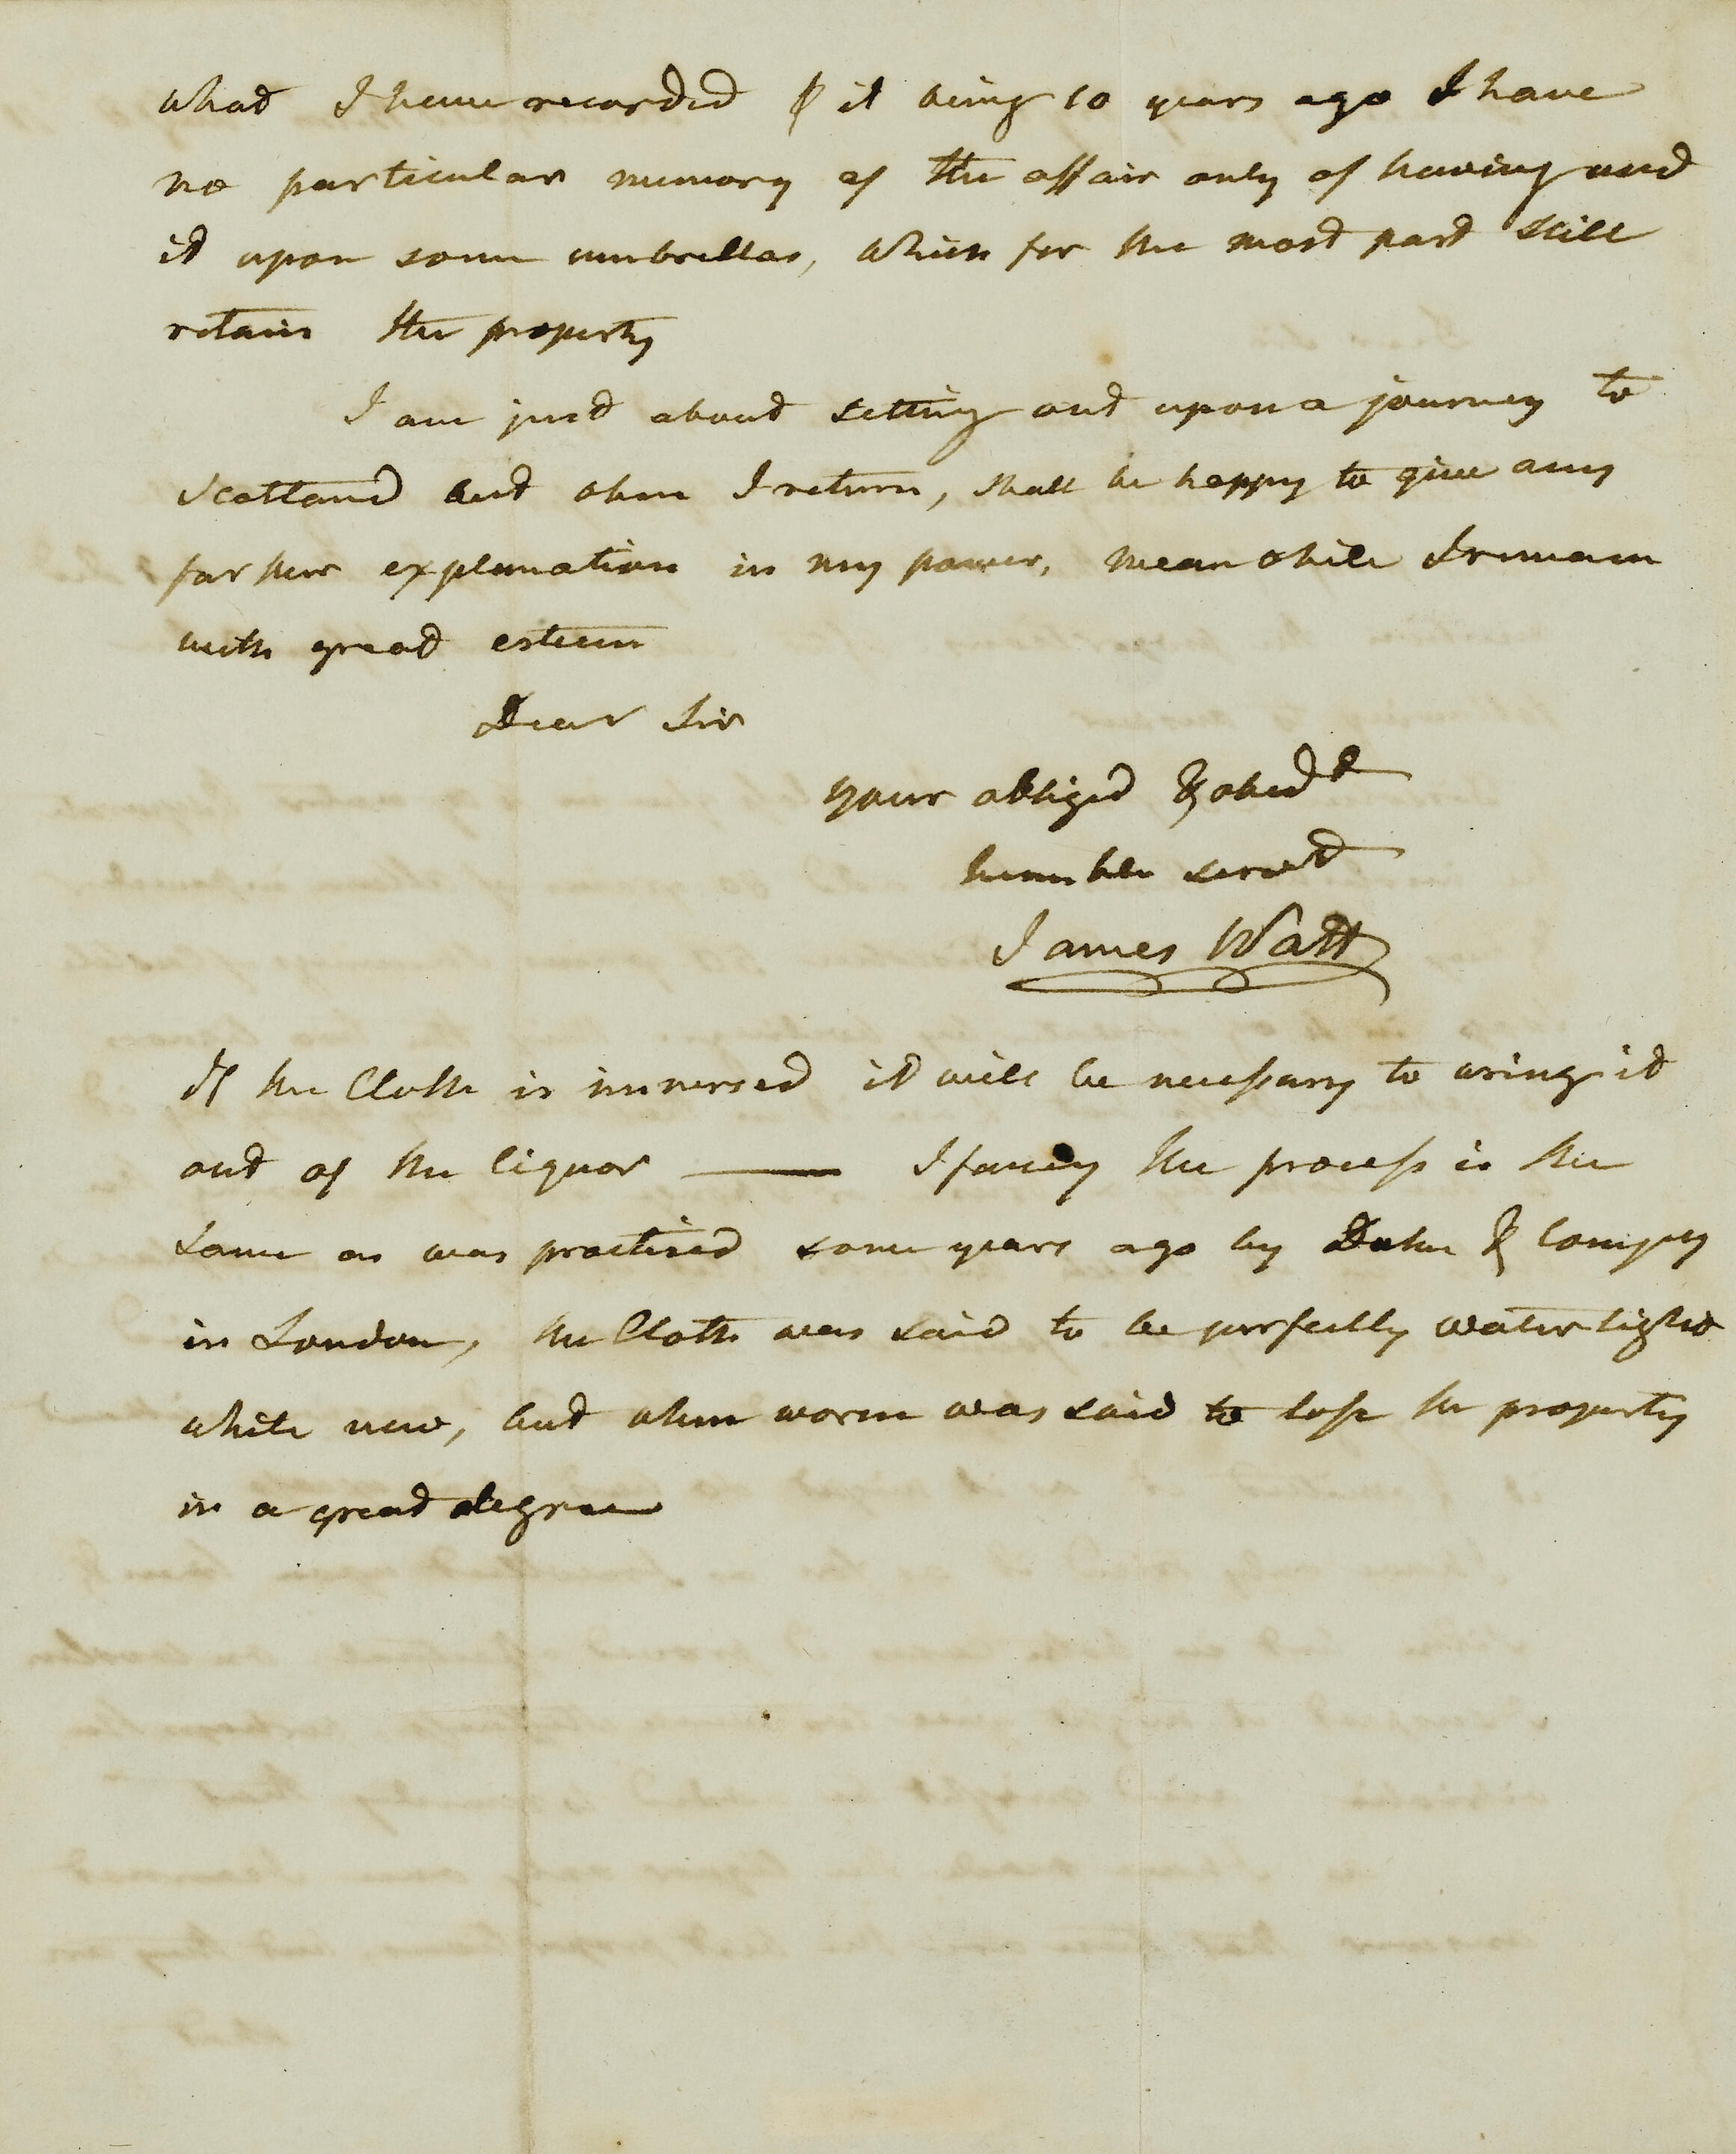 what I have recorded & it being 10 years ago I have
no particular memory of the affair only of having used
it upon some umbrellas, which for the most part still
retain the property
I am just about setting out upon a journey to
Scotland but when I return, shall be happy to give any
farther explanation in my power, mean while I remain
with great esteem
Dear Sir
your obliged & obedt
humble servt
James Watt
If the Cloth is immersed it will be necessary to wring it
out of the liquor — I fancy the process is the
same as was practised some years ago by & Compy
in London, the Cloth was said to be perfectly water tight
while new, but when worn was said to lose the property
in a great degree